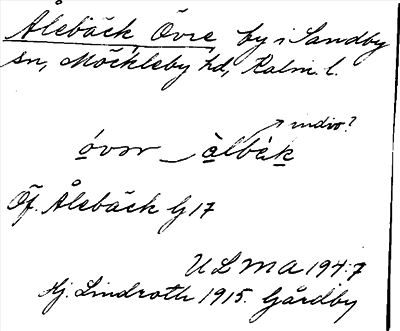 Ålebäck Övre by i Sandby
sn, Möckleby hd, Kalm. l.
indiv?
óvər àlbèk
Öf. Ålebäck G 17
ULMA 194:7
Hj. Lindroth 1915. Gårdby